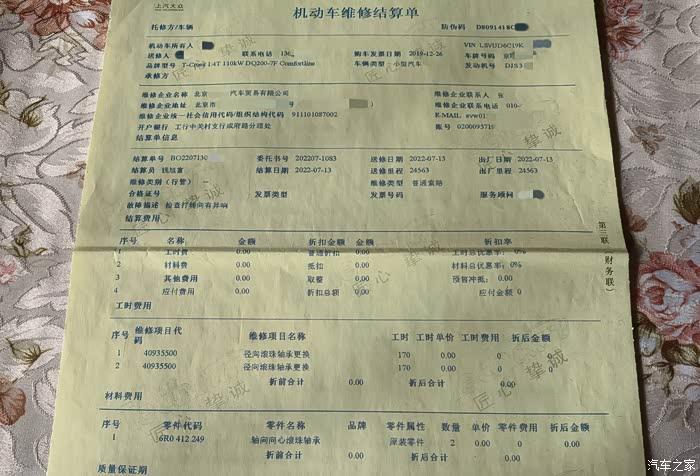 上汽大众
机动车维修结算单
托修方/车辆 防伪码 D8091418C
机动车所有人
送修人 联系电话 136 购车发票日期 2019-12-26 VIN LSVUD6C19K
品牌型号 T-Cross 1.4T 110kW DQ200-7F Comfortline 车辆类型 小型汽车 车牌号码 京
承修方 发动机号 DJS3
维修企业名称 北京 汽车贸易有限公司 维修企业联系人 张
维修企业地址 北京市 号 维修企业联系电话 010-
维修企业统一社会信用代码/组织结构代码 911101087002 E-MAIL svw01
开户银行 工行中关村支行成府路分理处 账号 0200093719
结算单信息
结算单号 BO2207130 委托书号 202207-1083 送修日期 2022-07-13 出厂日期 2022-07-13
结算员 钱旭富 结算日期 2022-07-13 送修里程 24563 出厂里程 24563
维修类别 (行管) 维修类型 普通索赔
合格证号 发票类型 发票号码 服务顾问
故障描述 检查打转向有异响
结算费用
序号 名称 金额 折扣金额 金额 折扣率
1 工时费 0.00 普通折扣 0.00 工时总优惠率: 0%
2 材料费 0.00 抵扣 0.00 材料总优惠率: 0%
3 其他费用 0.00 取整 0.00 预售冲抵: 0.00
4 应付费用 0.00 折扣总额 0.00 应付金额 0
工时费用
序号 维修项目代码 维修项目名称 工时 工时单价 工时费用 折后金额
1 40935500 径向滚珠轴承更换 170 0.00 0 0
2 40935500 径向滚珠轴承更换 170 0.00 0 0
折前合计 0.00 折后合计 0.00
材料费用
序号 零件代码 零件名称 品牌 零件属性 数量 单价 零件费用 折后金额
1 6R0 412 249 轴向向心滚珠轴承 原装零件 2 0.00 0 0.00
折前合计 0.00 折后合计 0.00
质量保证期
第三联 财务联)
匠心挚诚
匠心挚诚
匠心挚诚
匠心挚诚
汽车之家